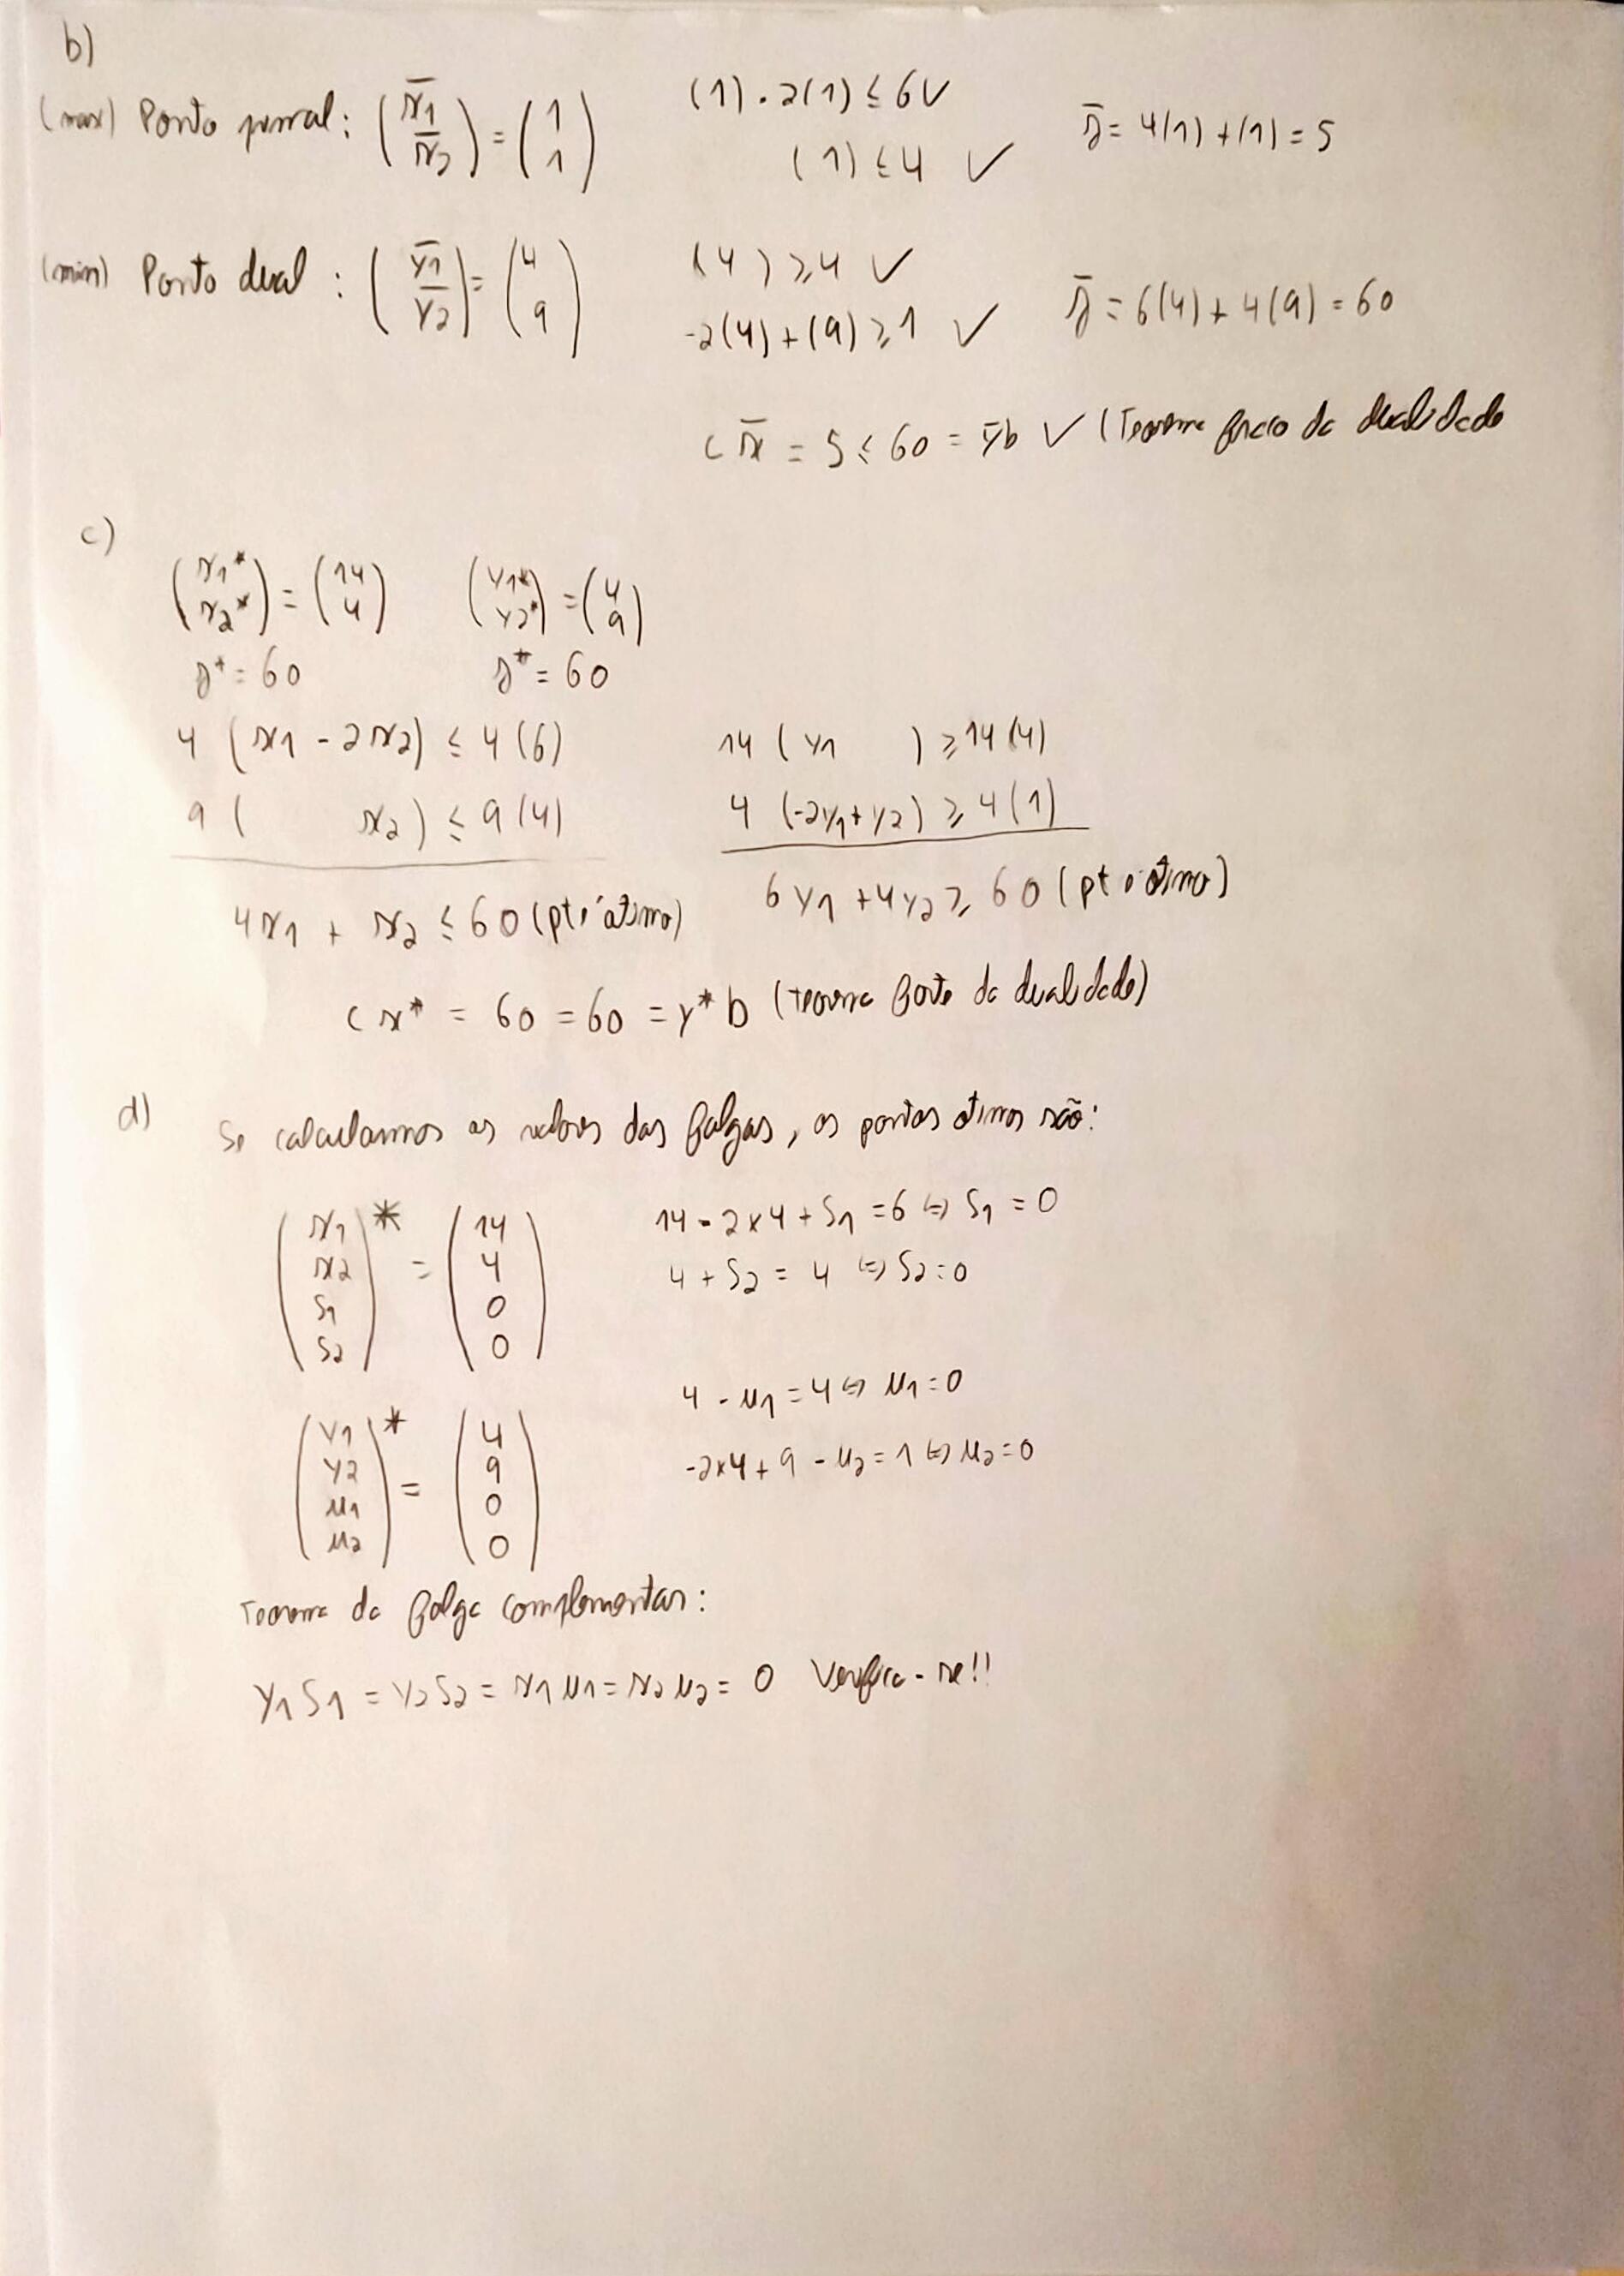 b)
(max) Ponto primal: (x̄1 x̄2) = (1 1) (1) - 2(1) ≤ 6 ✓ z̄ = 4(1) + (1) = 5
(1) ≤ 4 ✓
(min) Ponto dual : (ȳ1 ȳ2) = (4 9) (4) ≥ 4 ✓ z̄ = 6(4) + 4(9) = 60
-2(4) + (9) ≥ 1 ✓
c x̄ = 5 ≤ 60 = ȳb ✓ (Teorema fraco da dualidade
c)
(x1* x2*) = (14 4) (y1* y2*) = (4 9)
z* = 60 z* = 60
4 (x1 - 2x2) ≤ 4(6) 14 (y1 ) ≥ 14(4)
9 ( x2) ≤ 9(4) 4 (-2y1 + y2) ≥ 4(1)
4x1 + x2 ≤ 60 (pto ótimo) 6y1 + 4y2 ≥ 60 (pto ótimo)
c x* = 60 = 60 = y* b (teorema forte da dualidade)
d) Se calcularmos os valores das folgas, os pontos ótimos são:
(x1 x2 s1 s2)* = (14 4 0 0) 14 - 2×4 + s1 = 6 ⇔ s1 = 0
4 + s2 = 4 ⇔ s2 = 0
(y1 y2 u1 u2)* = (4 9 0 0) 4 - u1 = 4 ⇔ u1 = 0
-2×4 + 9 - u2 = 1 ⇔ u2 = 0
Teorema da folga complementar:
y1 s1 = y2 s2 = x1 u1 = x2 u2 = 0 Verifica-se!!